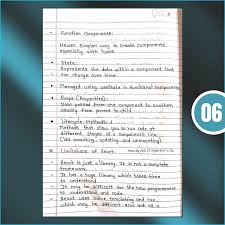 - Function Components:
Newer, simpler way to create components especially with hooks.
• State:
Represents the data within a component that can change over time.
Managed using useState in functional components
• Props (Properties):
Data passed from one component to another,
• Lifecycle Methods:
Methods that allow you to run code at different stages of a component's
(like mounting, updating, and unmounting)
• Limitations of React:
• React is just a library. It is not a complete framework.
• It has a huge library which takes time to understand
• It may be difficult for the new programmers to understand and code.
• React uses inline templating and JSX, which may be difficult and act as a
06